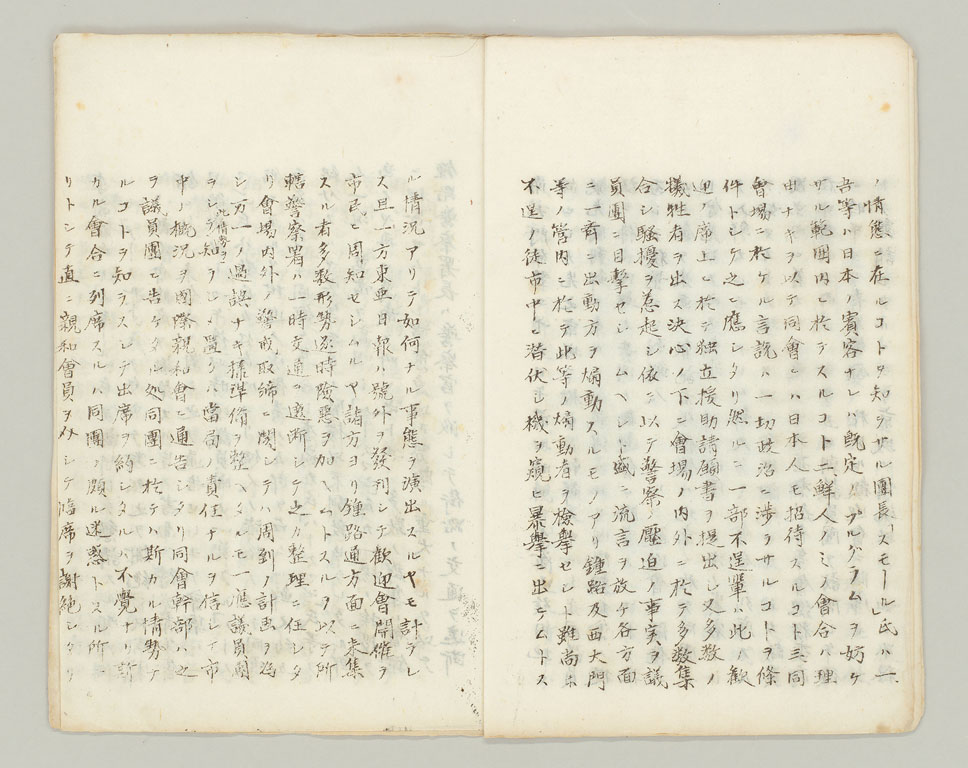 ノ情態ニ在ルコトヲ知ラザル團長「スモール」氏ハ一、
吾等ハ日本ノ賓客ナレバ既定ノプログラムヲ妨ケ
サル範囲内ニ於テスルコト二、鮮人ノミノ會合ハ理
由ナキヲ以テ同會ニハ日本人モ招待スルコト三、同
會場ニ於ケル言説ハ一切政治ニ渉ラサルコトヲ條
件トシテ之ニ應シタリ然ルニ一部不逞輩ハ此ノ歓
迎ノ席上ニ於テ独立援助請願書ヲ提出シ又多数ノ
犠牲者ヲ出ス決心ノ下ニ會場ノ内外ニ於テ多数集
合シ騒擾ヲ惹起シ依テ以テ警察ノ壓迫ノ事実ヲ議
員團ニ目撃セシムヘシト盛ニ流言ヲ放ケ各方面
ニ一斉ニ出動方ヲ煽動スルモノアリ鍾路及西大門
等ノ管内ニ於テ此等ノ煽動者ヲ檢擧セシト雖尚ホ
不逞ノ徒市中ニ潜伏シ機ヲ窺ヒ暴擧ニ出テムトス
ル情況アリテ如何ナル事態ヲ演出スルヤモ計ラレ
ス且一方東亜日報ハ號外ヲ發刊シテ歓迎會開催ヲ
市民ニ周知セシムルヤ諸方ヨリ鍾路通方面ニ来集
スル者多数形勢逐時險惡ヲ加ヘムトスルヲ以テ所
轄警察署ハ一時交通ヲ遮断シテ之カ整理ニ任シタ
リ會場内外ノ警戒取締ニ関シテハ周到ノ計画ヲ為
シ万一ノ過誤ナキ様準備ヲ整ヘタルモ一應議員團
ヲシテ此情勢ヲ知ラシメ置クハ當局ノ責任ナルヲ信シテ市
中ノ概況ヲ國際親和會ニ通告シタリ同會幹部ハ之
ヲ議員團ニ告ケタル処同團ニ於テハ斯カル情勢ナ
ルコトヲ知ラスシテ出席ヲ約シタルハ不覺ナリ斯
カル會合ニ列席スルハ同團ノ頗ル迷惑トスル所ナ
リトシテ直ニ親和會員ヲ介シテ臨席ヲ謝絶シタリ